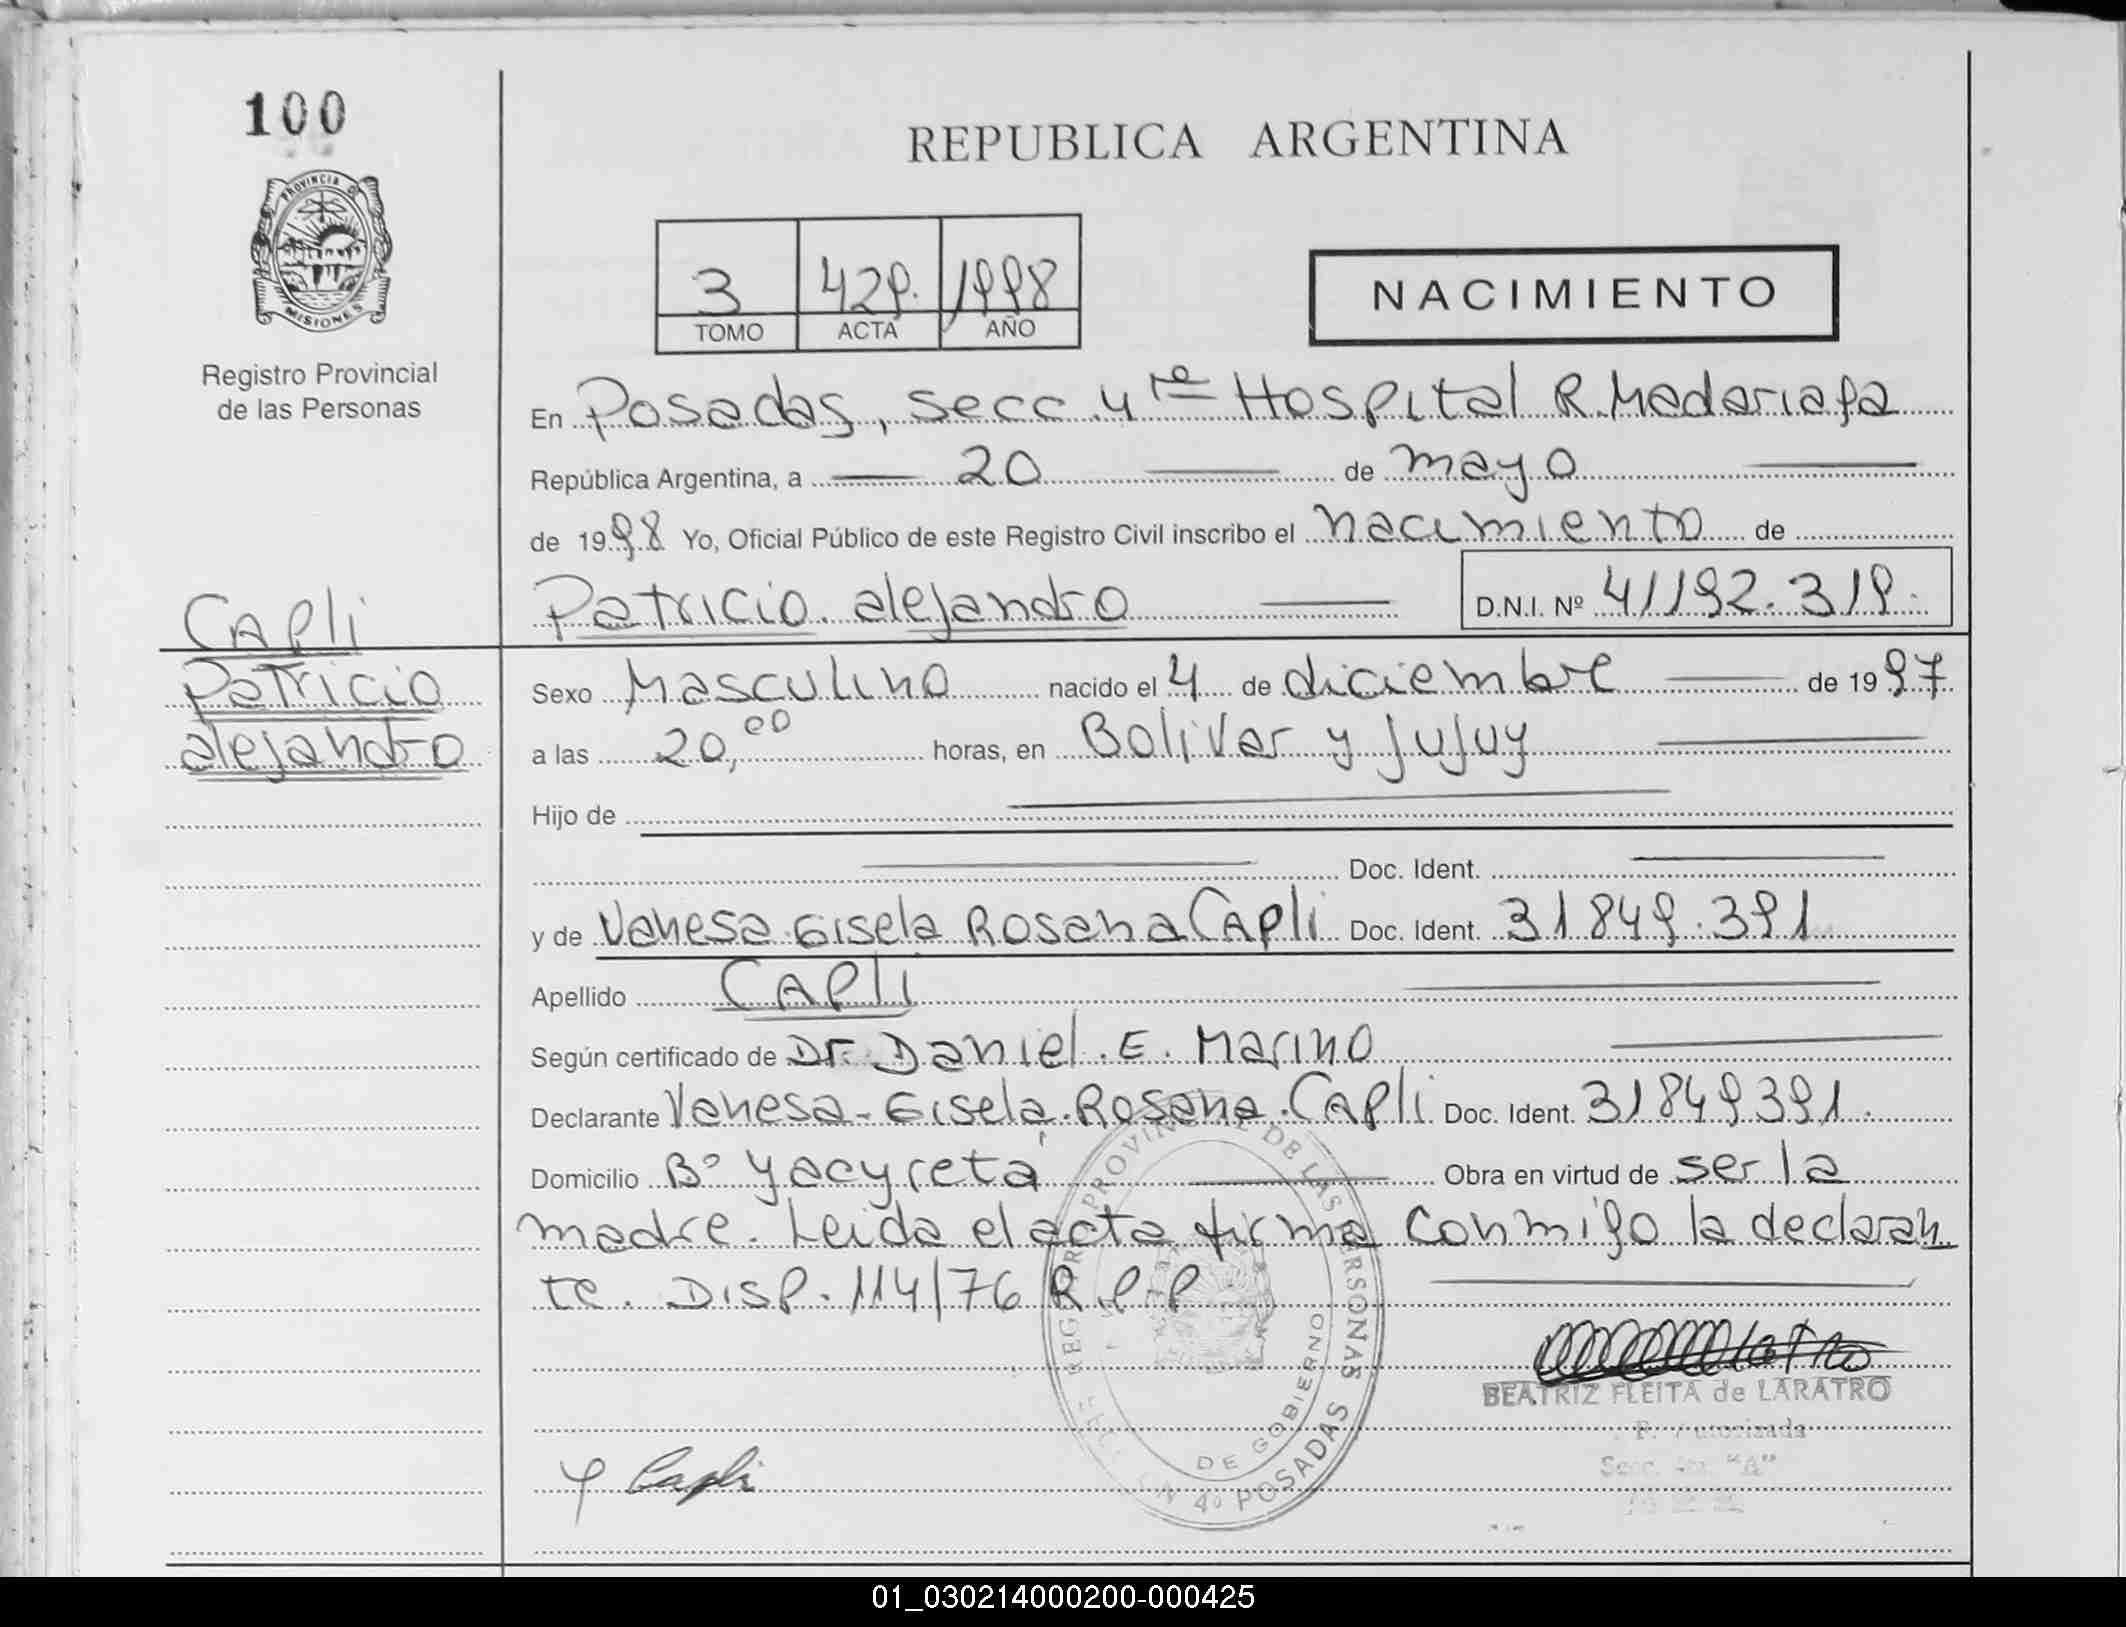 100
PROVINCIA D
MISIONES
Registro Provincial
de las Personas
REPUBLICA ARGENTINA
3 429. 1998
TOMO ACTA AÑO
NACIMIENTO
En Posadas, secc 4ta Hospital R. Madariaga
República Argentina, a 20 de mayo
de 1998 Yo, Oficial Público de este Registro Civil inscribo el nacimiento de
Patricio alejandro D.N.I. Nº 41192.319.
CAPli
Patricio
alejandro
Sexo Masculino nacido el 4 de diciembre de 1997
a las 20,00 horas, en Bolivar y Jujuy
Hijo de
Doc. Ident.
y de Vanesa Gisela Rosana CAPli Doc. Ident. 31849.391
Apellido CAPli
Según certificado de Dr. Daniel. E. Marino
Declarante Vanesa-Gisela Rosana CAPli Doc. Ident. 31849391.
Domicilio Bº Yacyretá Obra en virtud de ser la
madre. Leida el acta firma conmigo la declaran
te. Disp. 114/76 R.P.P
PROVINCIAL DE LAS PERSONAS
DE GOBIERNO
4º POSADAS
BEATRIZ FLEITA de LARATRO
F. Autorizada
Secc. 4ta. "A"
Capli
01_030214000200-000425